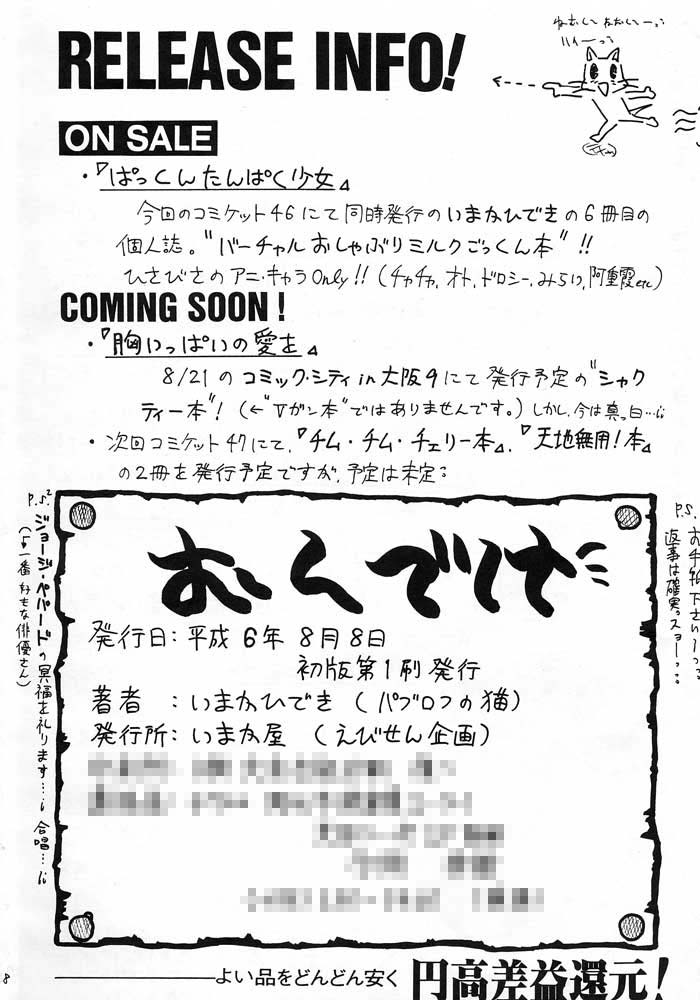 RELEASE INFO!
ON SALE
・『ぱっくんたんぱく少女』
今回のコミケット46にて同時発行のいまかひできの6冊目の
個人誌。“バーチャルおしゃぶりミルクごっくん本”!!
ひさびさのアニ・キャラOnly!!(チャチャ,オト,ドロシー,みらい,阿重霞etc)
COMING SOON!
・『胸いっぱいの愛を』
8/21のコミック・シティin大阪9にて発行予定の“シャク
ティー本”!(←“Vガン本”ではありませんです。)しかし,今は真っ白…
・次回コミケット47にて,『チム・チム・チェリー本』,『天地無用!本』
の2冊を発行予定ですが,予定は未定
P.S.
お手紙下さい
返事は確実っスョーっ
P.S.²
ジョージ・ペパードの冥福を礼ります…合唱…
(一番好きな俳優さん)
おくづけ
発行日:平成6年8月8日
初版第1刷発行
著者 :いまかひでき(パブロフの猫)
発行所:いまか屋 (えびせん企画)
8
よい品をどんどん安く 円高差益還元!